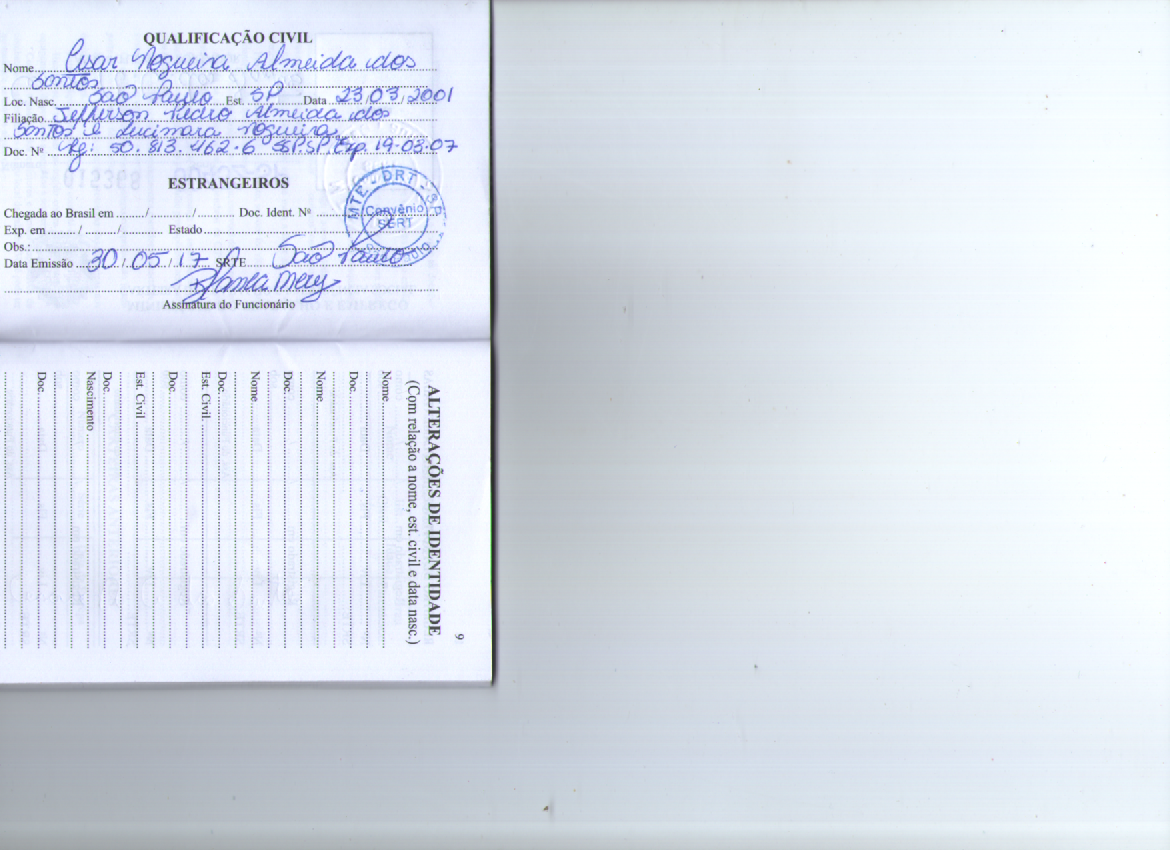 QUALIFICAÇÃO CIVIL
Nome Cesar Nogueira Almeida dos
Santos
Loc. Nasc. São Paulo Est. SP Data 23/03/2001
Filiação Jefferson Pedro Almeida dos
Santos e Lucimara Nogueira
Doc. Nº Rg: 50.813.462-6 SSPSP Exp. 19-03-07
015368
ESTRANGEIROS
Chegada ao Brasil em ......../............/........... Doc. Ident. Nº
Exp. em ......../........./............ Estado
Obs.:
Data Emissão 30/05/17 SRTE São Paulo
Mery
Assinatura do Funcionário
MTE - DRT - SP
Convênio
SERT
ALTERAÇÕES DE IDENTIDADE
(Com relação a nome, est. civil e data nasc.)
Nome
Doc.
Nome
Doc.
Nome
Doc.
Est. Civil
Doc.
Est. Civil
Doc.
Nascimento
Doc.
9